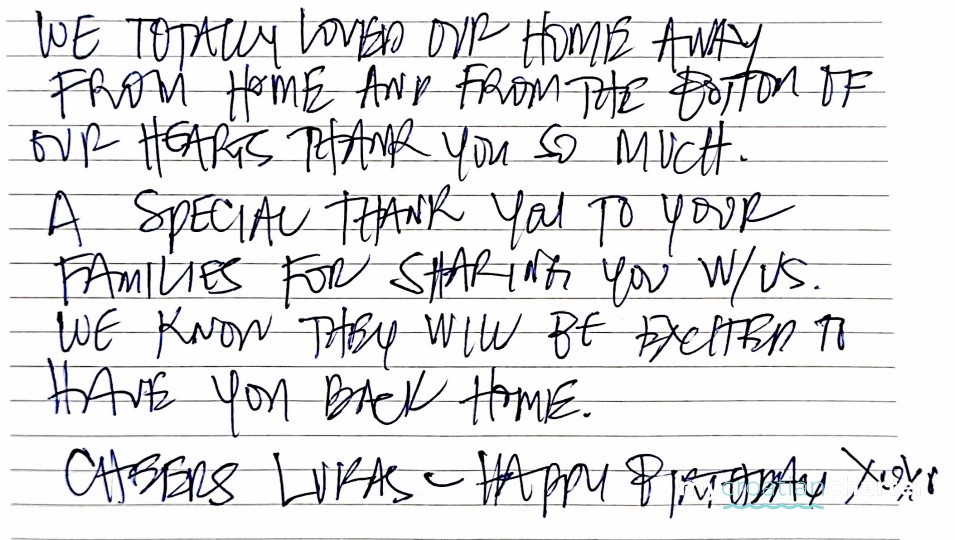 WE TOTALLY LOVED OUR HOME AWAY
FROM HOME AND FROM THE BOTTOM OF
OUR HEARTS THANK YOU SO MUCH.
A SPECIAL THANK YOU TO YOUR
FAMILIES FOR SHARING YOU W/US.
WE KNOW THEY WILL BE EXCITED TO
HAVE YOU BACK HOME.
CHEERS LUKAS - HAPPY BIRTHDAY XOXO
mycroatiancharter